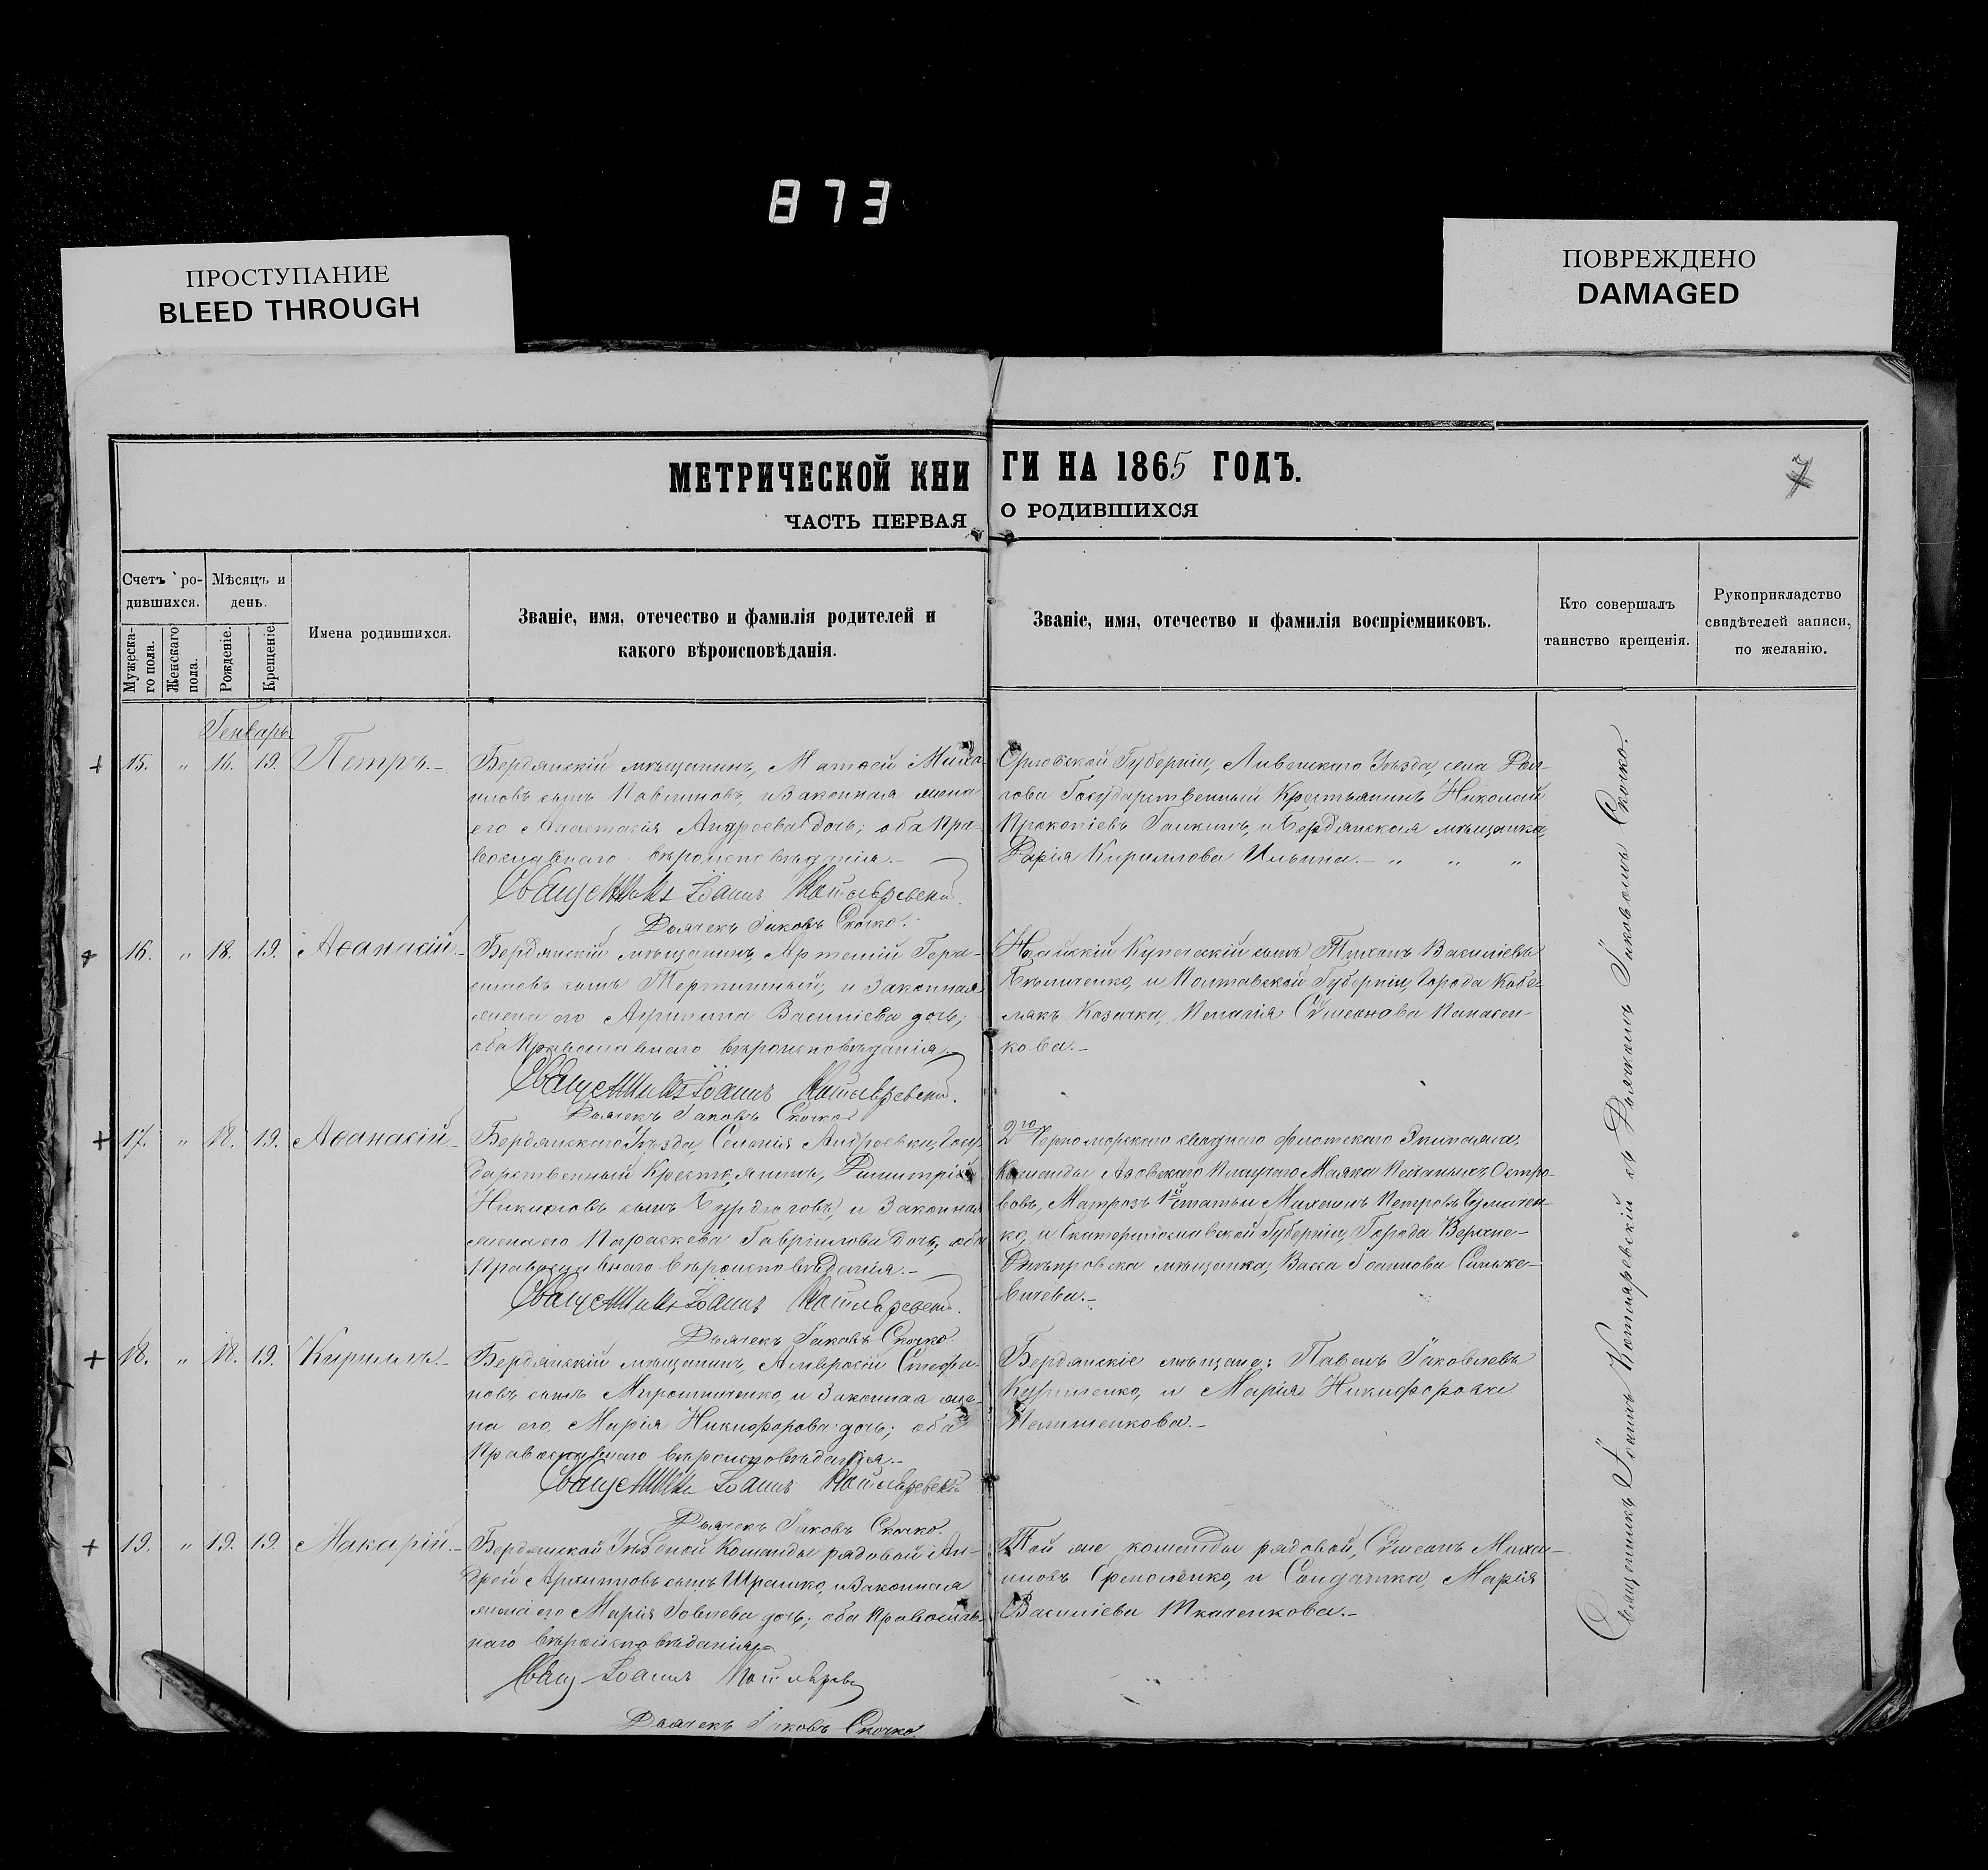 873
ПРОСТУПАНИЕ
BLEED THROUGH
ПОВРЕЖДЕНО
DAMAGED
МЕТРИЧЕСКОЙ КНИГИ НА 1865 ГОДЪ.
7
ЧАСТЬ ПЕРВАЯ О РОДИВШИХСЯ
Счетъ родившихся.
Мужеска-го пола.
Женскаго пола.
Мѣсяцъ и день.
Рожденіе.
Крещеніе.
Имена родившихся.
Званіе, имя, отечество и фамилія родителей и
какого вѣроисповѣданія.
Званіе, имя, отечество и фамилія воспріемниковъ.
Кто совершалъ
таинство крещенія.
Рукоприкладство
свидѣтелей записи,
по желанію.
Генварь
+ 15. " 16. 19. Петръ.-
Бердянскій мѣщанинъ, Матѳей Михаи-
ловъ сынъ Павлиновъ, и Законная жена
его Анастасія Андреева дочь; оба Пра-
вославнаго вѣроисповѣданія.-
Священникъ Іоаннъ Котляревскій.
Дьячекъ Іаковъ Скочко.
Орловской Губерніи, Ливенскаго Уѣзда, села
Государственный Крестьянинъ Николай
Прокопіевъ и Бердянская мѣщанка,
Дарія Кириллова Ильина.- " " "
+ 16. " 18. 19. Аѳанасій.-
Бердянскій мѣщанинъ, Артемій Гера-
симовъ сынъ и Законная
жена его Агрипина Василіева дочь;
оба Православнаго вѣроисповѣданія.-
Священникъ Іоаннъ Котляревскій.
Дьячекъ Іаковъ Скочко
Купеческій сынъ Тихонъ Василіевъ
и Полтавской Губерніи, Города Кобе-
лякъ Козачка, Пелагія Сѵмеонова Панасен-
кова.-
+ 17. " 18. 19. Аѳанасій.-
Бердянскаго Уѣзда, Селенія Андреевки, Госу-
дарственный Крестьянинъ, Димитрій
сынъ и Законная
жена его Параскева Гавріилова дочь, оба
Православнаго вѣроисповѣданія.-
Священникъ Іоаннъ Котляревскій.
Дьячекъ Іаковъ Скочко.
2го Черноморскаго своднаго флотскаго Экипажа,
Команды Азовскаго Плавучаго Маяка Песчаныхъ Остро-
вовъ, Матрозъ 1й статьи Михаилъ Петровъ Чумачен-
ко, и Екатеринославской Губерніи, Города Верхне-
Днѣпровска мѣщанка, Васса Іоаннова Синьке-
вичева.-
+ 18. " 18. 19. Кириллъ.-
Бердянскій мѣщанинъ, Амвросій Стефа-
новъ сынъ Мирошниченко, и Законная же-
на его, Марія Никифорова дочь; оба
Православнаго вѣроисповѣданія.-
Священникъ Іоаннъ Котляревскій
Дьячекъ Іаковъ Скочко.
Бердянскіе мѣщане: Павелъ Іаковлевъ
и Марія Никифорова
+ 19. " 19. 19. Макарій.-
Бердянской Уѣздной Команды рядовой Ан-
дрей Архиповъ сынъ Шрамко, и Законная
жена его Марія дочь; оба Православ-
наго вѣроисповѣданія.
Свящ Іоаннъ Котлярев
Дьячекъ Іаковъ Скочко.
Той же команды рядовой, Сѵмеонъ Михаи-
ловъ Ермоленко, и Солдатка, Марія
Василіева Ткаченкова.-
Священникъ Іоаннъ Котляревскій съ Дьячкомъ Іаковомъ Скочко.